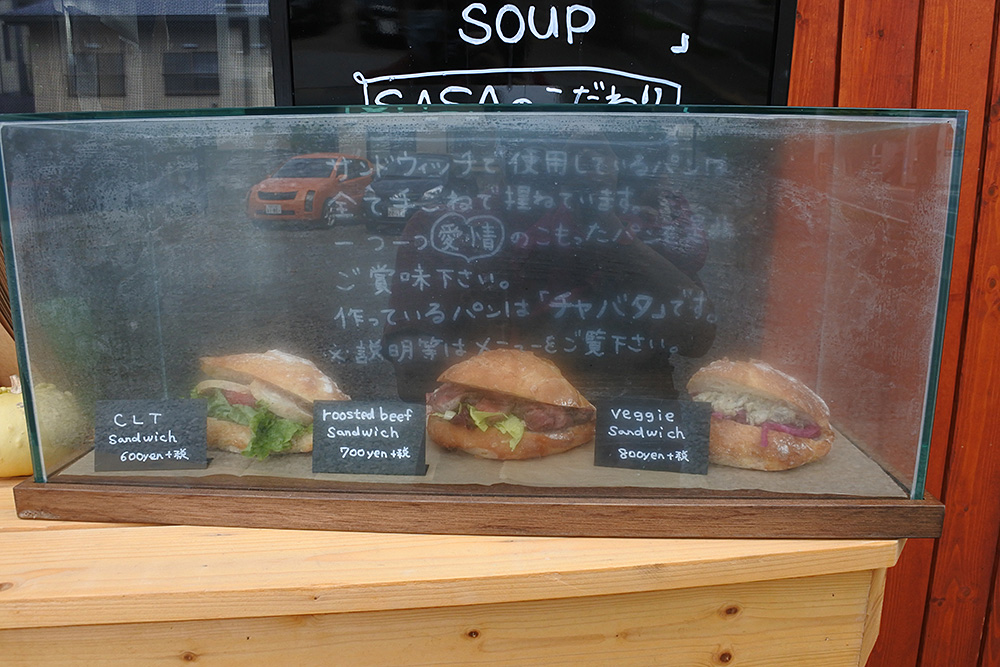 SOUP
」
SASAのこだわり
サンドウィッチで使用しているパンは
全て手ごねで捏ねています。
一つ一つ愛情のこもったパンを
ご賞味下さい。
作っているパンは「チャバタ」です。
※説明等はメニューをご覧下さい。
CLT
Sandwich
600yen+税
roosted beef
Sandwich
700yen+税
Veggie
Sandwich
800yen+税